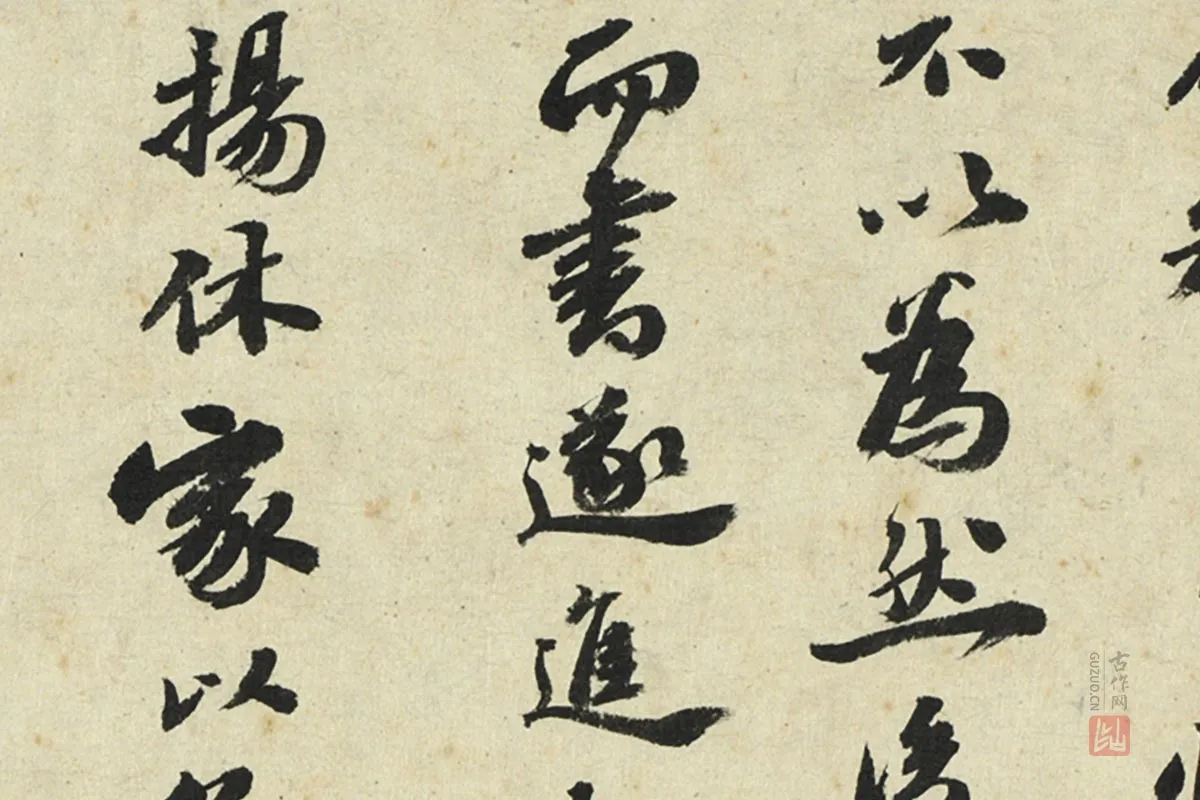 不以為然
而書遂進
揚休家以
古作网
GUZUO.CN